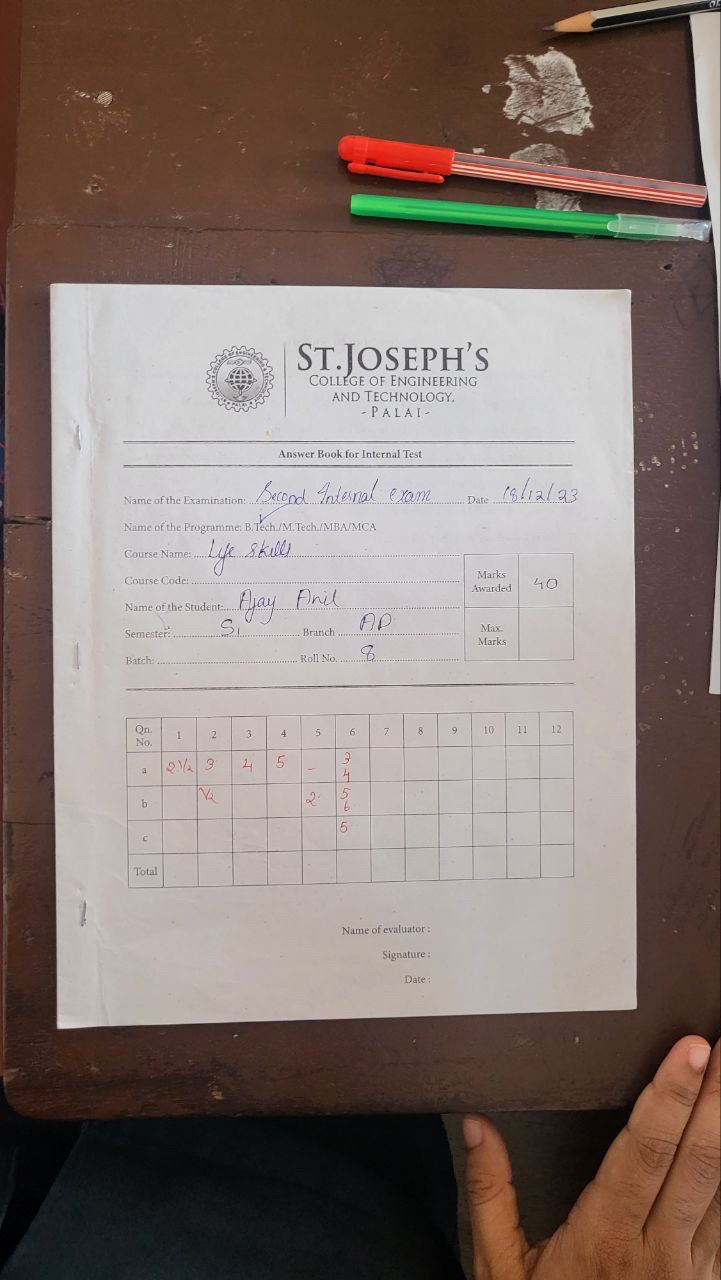 ST.JOSEPH'S
COLLEGE OF ENGINEERING
AND TECHNOLOGY,
- PALAI -
Answer Book for Internal Test
Name of the Examination: Second Internal Exam Date 18/12/23
Name of the Programme: B.Tech./M.Tech./MBA/MCA
Course Name: Life Skills
Course Code:
Name of the Student: Ajay Anil
Semester: S1 Branch AD
Batch: Roll No. 8
Marks Awarded 40
Max. Marks
Qn. No. 1 2 3 4 5 6 7 8 9 10 11 12
a 2 1/2 3 4 5 - 3 4
b 1/2 2 5 6
c 5
Total
Name of evaluator :
Signature :
Date :